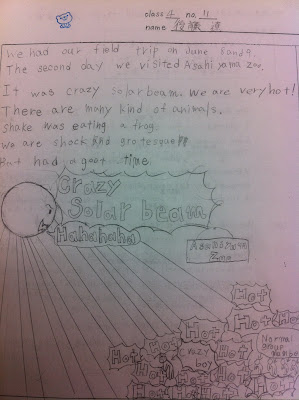 class 4 no. 11
name
We had our field trip on June 8 and 9.
The second day we visited Asahiyama zoo.
It was crazy solarbeam. We are very hot!
There are many kind of animals.
Snake was eating a frog.
We are shock and grotesque!!
But had a good time.
Crazy
Solar beam
Hahahaha
Asahiyama
Zoo
Hot
Hot
Hot
Hot
Hot
Hot
Hot
boy
Normal
group
member
Hot
Hot